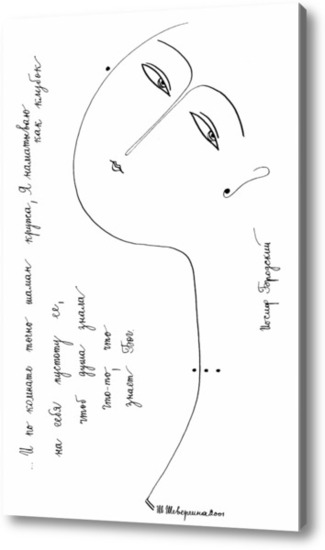 ...И по комнате точно шаман кружа, Я наматываю
как клубок
на себя пустоту ее,
чтоб душа знала
что-то что
знает Бог.
Иосиф Бродский